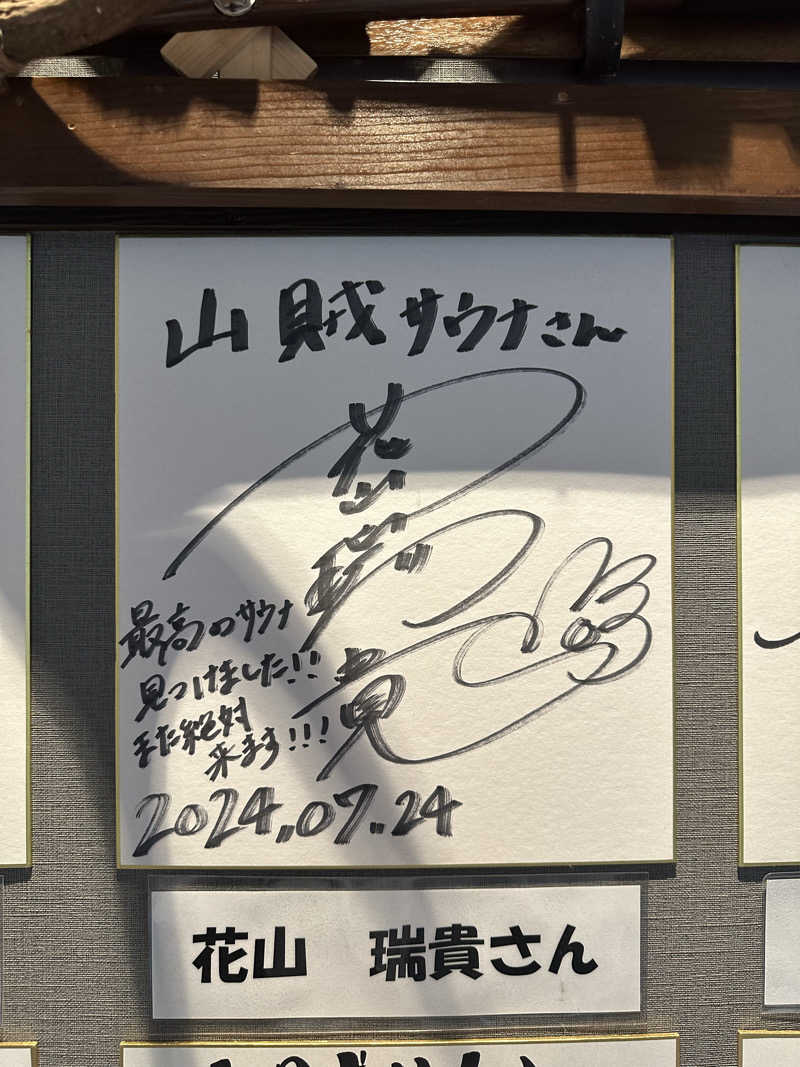 山賊サウナさん
花山
瑞
貴
最高のサウナ
見つけました!!
また絶対
来ます!!!
2024.07.24
花山 瑞貴さん